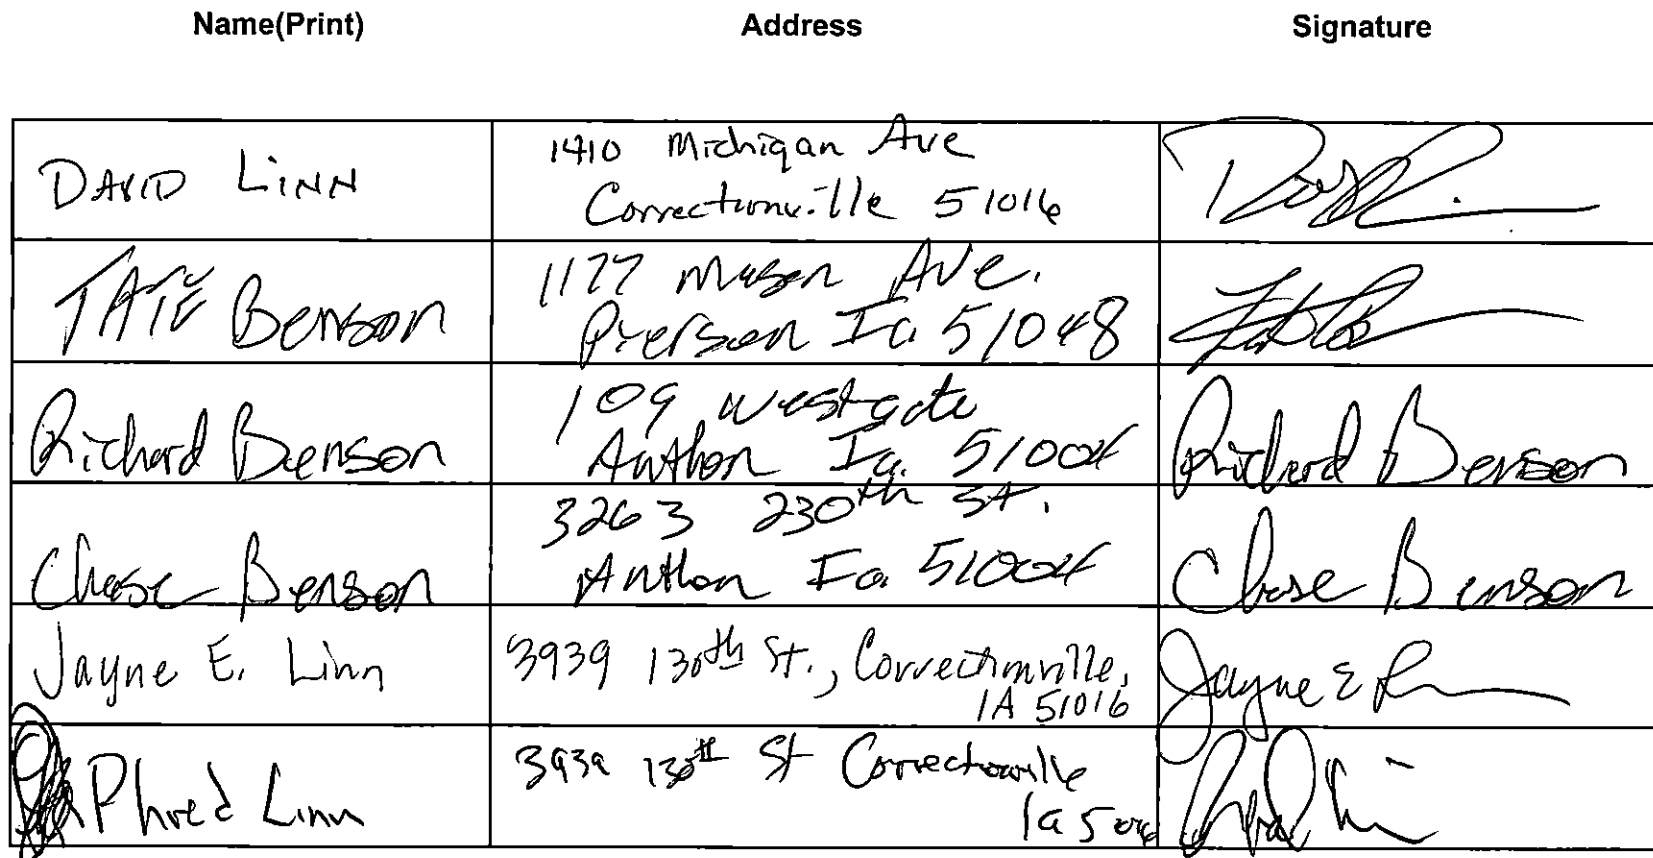 Name(Print) Address Signature
DAVID LINN
1410 Michigan Ave
Correctionville 51016
TATE Benson
1177 Mason Ave.
Pierson Ia. 51048
Richard Benson
109 westgate
Anthon Ia. 51004
Richard Benson
Chase Benson
3263 230th St.
Anthon Ia. 51004
Chase Benson
Jayne E. Linn
3939 130th St., Correctionville,
IA 51016
Jayne E
Phred Linn
3939 130th St Correctionville
Ia